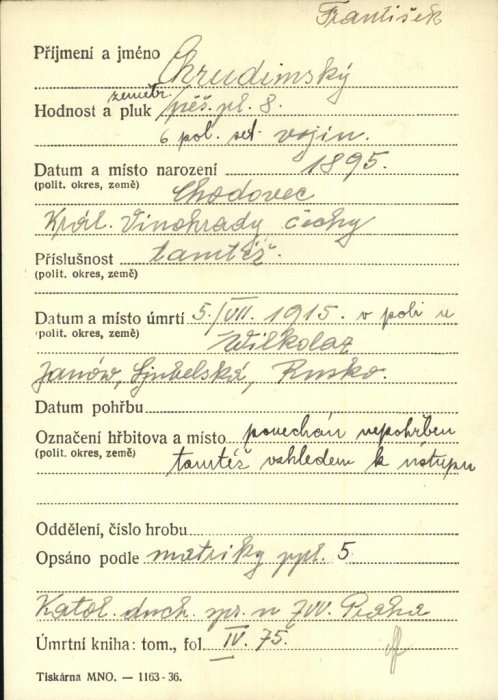 František
Příjmení a jméno Chrudimský
zeměbr.
Hodnost a pluk pěš. pl. 8.
6 pol. set. vojín.
Datum a místo narození 1895.
(polit. okres, země) Chodovec
Král. Vinohrady čechy
Příslušnost tamtéž.
(polit. okres, země)
Datum a místo úmrtí 5./VII. 1915. v poli u
(polit. okres, země) Wilkolaz
Janów, Ljubelská, Rusko.
Datum pohřbu
Označení hřbitova a místo ponechán nepohřben
(polit. okres, země) tamtéž vzhledem k ústupu
Oddělení, číslo hrobu
Opsáno podle matriky ppl. 5
Katol. duch. spr. u ZVV. Praha
Úmrtní kniha: tom., fol IV. 75.
Tiskárna MNO. — 1163-36.